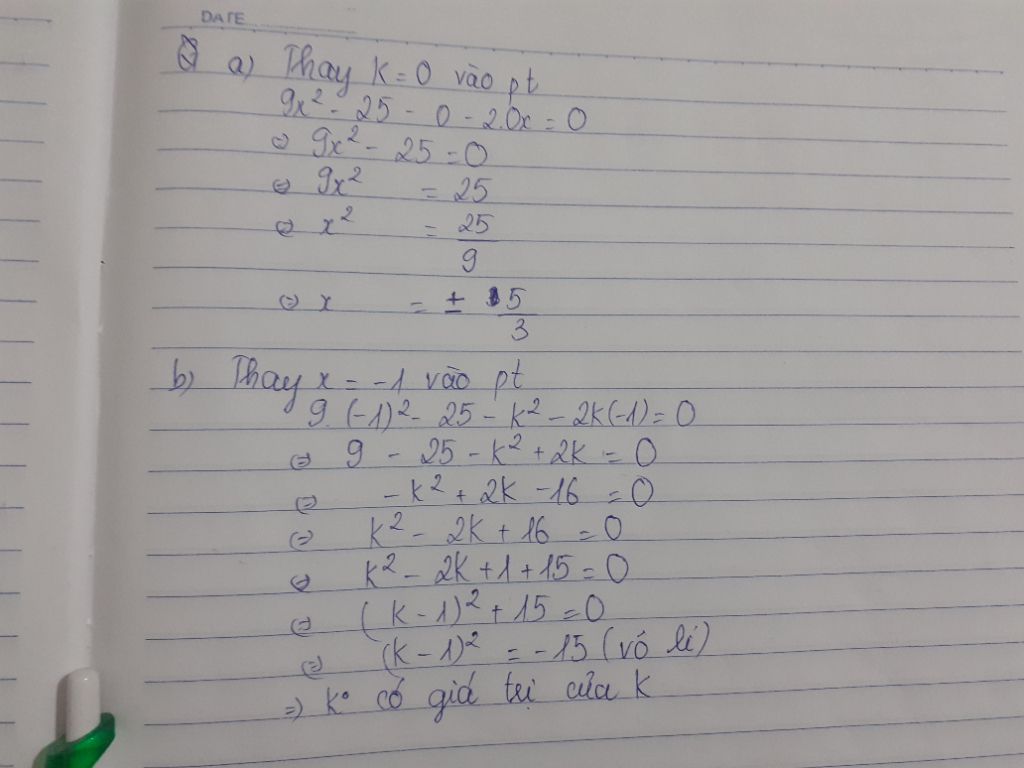 DATE
a) Thay K = 0 vào pt
9x² - 25 - 0 - 2.0x = 0
⇔ 9x² - 25 = 0
⇔ 9x² = 25
⇔ x² = 25/9
⇔ x = ± 5/3
b) Thay x = -1 vào pt
9.(-1)² - 25 - k² - 2k(-1) = 0
⇔ 9 - 25 - k² + 2k = 0
⇔ -k² + 2k - 16 = 0
⇔ k² - 2k + 16 = 0
⇔ k² - 2k + 1 + 15 = 0
⇔ (k - 1)² + 15 = 0
⇔ (k - 1)² = -15 (vô lí)
⇒ K° có giá trị của K